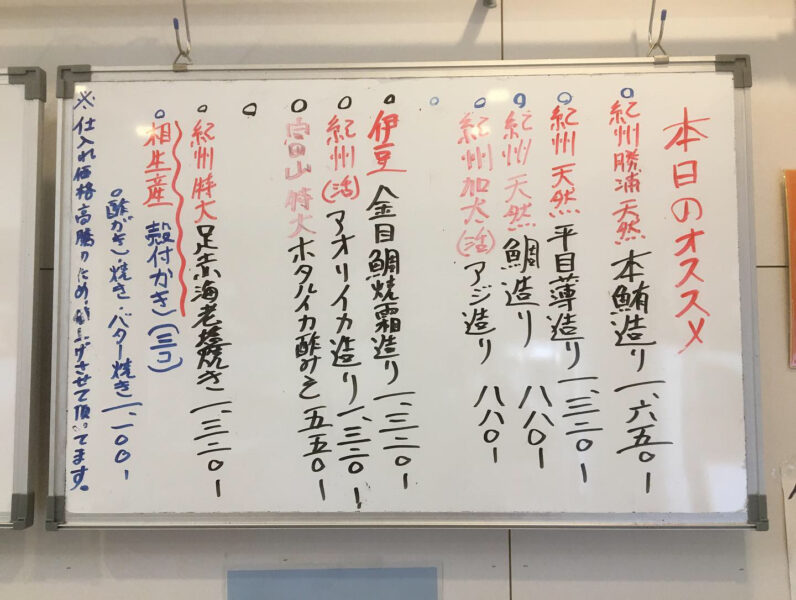 本日のオススメ
紀州勝浦天然本鮪造り 一、六五〇-
紀州天然平目薄造り 一、三二〇-
紀州天然鯛造り 八八〇-
紀州加太(活)アジ造り 八八〇-
伊豆金目鯛焼霜造り 一、三二〇-
紀州(活)アオリイカ造り 一、三二〇-
富山特大ホタルイカ酢みそ 五五〇-
紀州特大足赤海老塩焼き 一、三二〇-
相生産 殻付かき(三コ)
酢がき・焼き・バター焼き 一、一〇〇-
※仕入れ価格高騰のため、値上げさせて頂いてます。